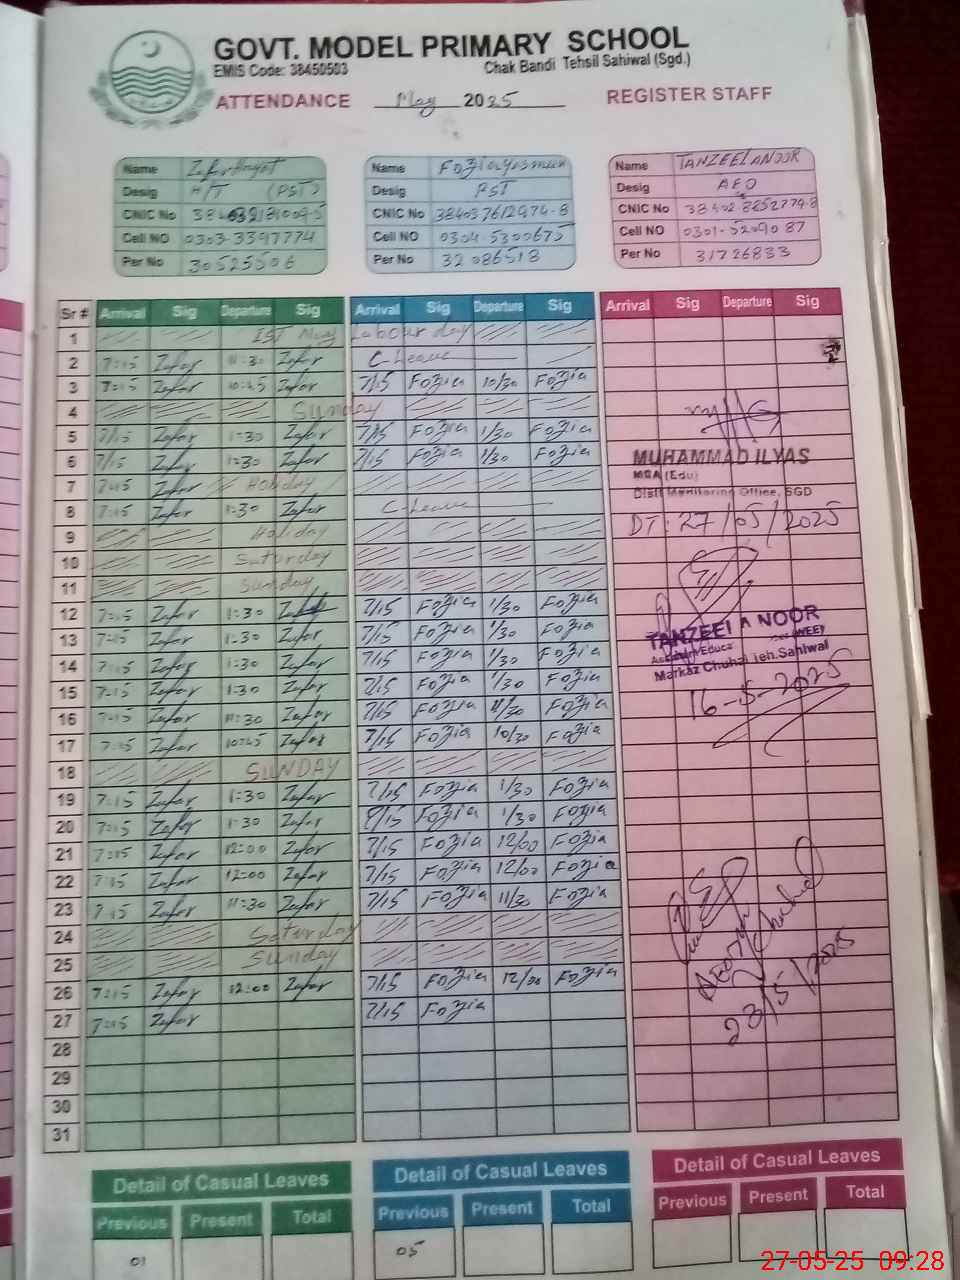 GOVT. MODEL PRIMARY SCHOOL
EMIS Code: 38450503 Chak Bandi Tehsil Sahiwal (Sgd.)
ATTENDANCE May 2025 REGISTER STAFF
Name Zafar Hayat Name Foziayasmeen Name TANZEELA NOOR
Desig H/T (PST) Desig PST Desig AEO
CNIC No CNIC No 384037612974-8 CNIC No 38402-8252779-8
Cell NO 0303-3397774 Cell NO 0304-5300675 Cell NO 0301-5209087
Per No 30525506 Per No 32086518 Per No 31726833
Sr # Arrival Sig Departure Sig Arrival Sig Departure Sig Arrival Sig Departure Sig
1 IST May Labour day
2 7:15 Zafar 11:30 Zafar C-Leave
3 7:15 Zafar 10:45 Zafar 7/15 Fozia 10/30 Fozia
4 Sunday
5 7/15 Zafar 1:30 Zafar 7/15 Fozia 1/30 Fozia
6 7/15 Zafar 1:30 Zafar 7/15 Fozia 1/30 Fozia
MUHAMMAD ILYAS
7 7:15 Zafar Holiday
MEA (Edu)
Distt Monitoring Office, SGD
8 7:15 Zafar 1:30 Zafar C-Leave
DT: 27/05/2025
9 Holiday
10 Saturday
11 Sunday
12 7:15 Zafar 1:30 Zafar 7/15 Fozia 1/30 Fozia
13 7:15 Zafar 1:30 Zafar 7/15 Fozia 1/30 Fozia
TANZEELA NOOR
14 7:15 Zafar 1:30 Zafar 7/15 Fozia 1/30 Fozia
Markaz Chuhal Teh.Sahiwal
15 7:15 Zafar 1:30 Zafar 7/15 Fozia 1/30 Fozia
16-5-2025
16 7:15 Zafar 11:30 Zafar 7/15 Fozia 11/30 Fozia
17 7:15 Zafar 10:45 Zafar 7/15 Fozia 10/30 Fozia
18 SUNDAY
19 7:15 Zafar 1:30 Zafar 7/15 Fozia 1/30 Fozia
20 7:15 Zafar 1:30 Zafar 7/15 Fozia 1/30 Fozia
21 7:15 Zafar 12:00 Zafar 7/15 Fozia 12/00 Fozia
22 7:15 Zafar 12:00 Zafar 7/15 Fozia 12/00 Fozia
23 7:15 Zafar 11:30 Zafar 7/15 Fozia 11/30 Fozia
24 Saturday
25 Sunday
26 7:15 Zafar 12:00 Zafar 7/15 Fozia 12/30 Fozia
27 7:15 Zafar 7/15 Fozia
23/5/2025
28
29
30
31
Detail of Casual Leaves Detail of Casual Leaves Detail of Casual Leaves
Previous Present Total Previous Present Total Previous Present Total
01 05
27-05-25 09:28